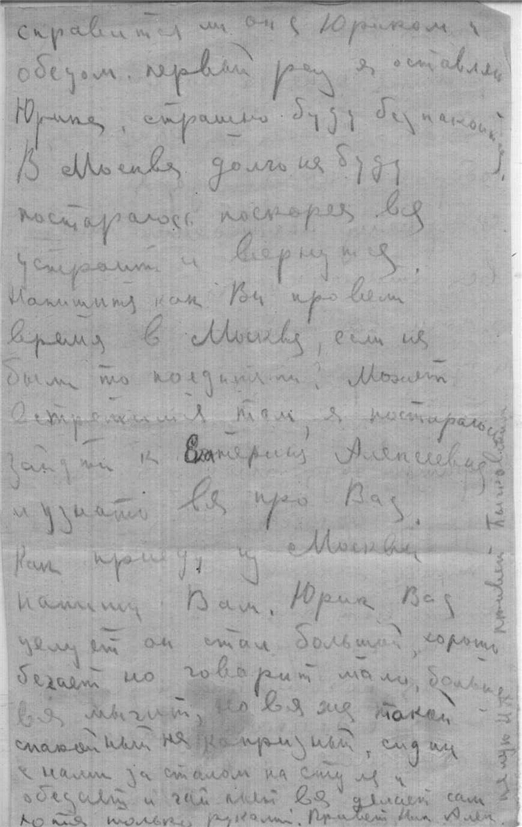 справится ли он с Юриком и
обедом. первый раз я оставляю
Юрика, страшно буду безпакоится,
В Москвя долго ня буду
постараюсь поскорея вся
устроить и вернутся.
Напишитя как Вы провели
время в Москвя, если ня
были то поедитя ли. Можеть
встретимся там, я постараюсь
зайдти к Екатерина Алексеевна,
и узнать вся про Вас.
Как приеду из Москвы
напишу Вам. Юрик Вас
целует он стал большой, хорошо
бегает но говорит мало, больше
вся мычит, но вся жа такой
спакойный ня капризный, сидит
с нами за столом на стуля и
обедает и чай пьет вся делает сам
хотя только руками. Привет Ник Алек.
целую Н.К привет